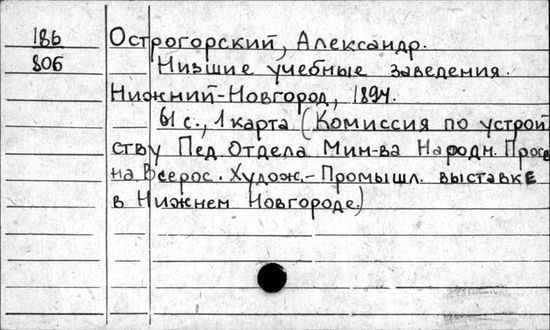 186
806
Острогорский, Александр.
Низшие учебные заведения.
Нижний-Новгород, 1894.
61 с., 1 карта (Комиссия по устрой
ству Пед. Отдела Мин-ва Народн. Просв
на Всерос. Худож.-Промышл. выставке
в Нижнем Новгороде.)